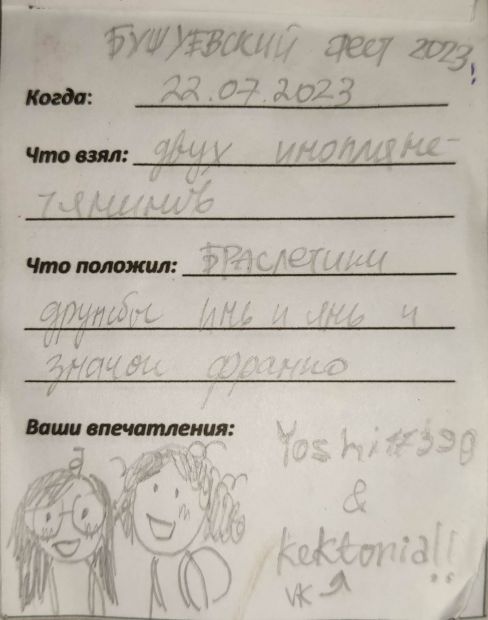 БУШУЕВСКИЙ фест 2023
Когда: 22.07.2023
Что взял: двух инопляне-
тянинов
Что положил: Браслетики
дружбы инь и янь и
значок франко
Ваши впечатления:
Yoshi17390
&
kektonia!!
VK